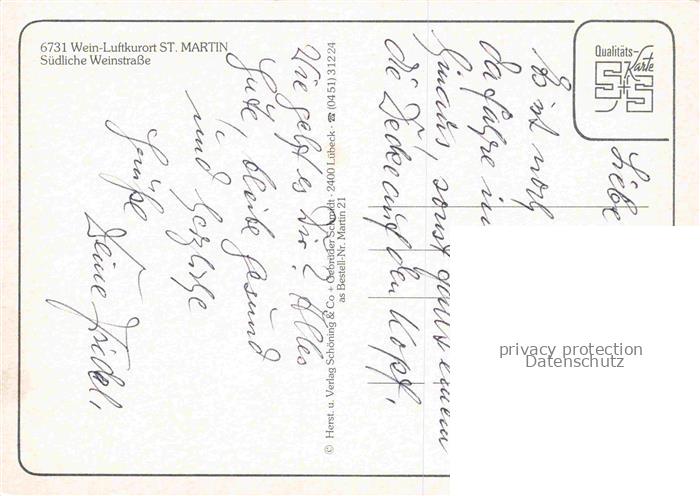 6731 Wein-Luftkurort ST. MARTIN
Südliche Weinstraße
Qualitäts-
Karte
S+S
© Herst. u. Verlag Schöning & Co + Gebrüder Schmidt · 2400 Lübeck · ☎ (0451) 31224
as Bestell-Nr. Martin 21
Liebe
Es ist noch
da fahre in
hinaus, sonst
die Decke auf den Kopf,
Wie geht es Dir? Alles
Gute, bleibe gesund
und herzliche
Grüße
Deine Friedel,
privacy protection
Datenschutz